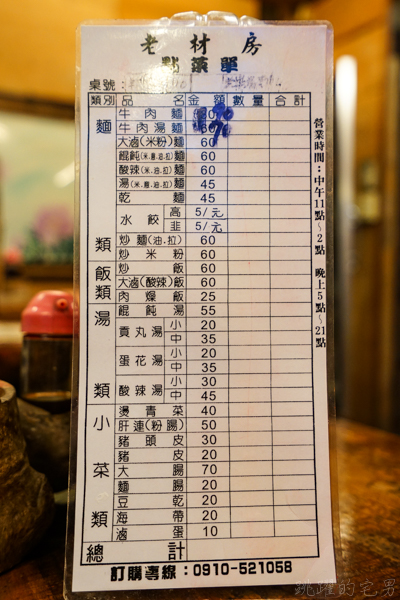 老材房
點菜單
桌號：
類別 品名 金額 數量 合計
麵類
牛肉麵
牛肉湯麵
大滷(米粉)麵 60
餛飩(米.麵.油.拉)麵 60
酸辣(米.油.拉)麵 60
湯(米.麵.油.拉)麵 45
乾麵 45
水餃 高 5/元
韭 5/元
炒麵(油.拉) 60
炒米粉 60
飯類
炒飯 60
大滷(酸辣)飯 60
肉燥飯 25
湯類
餛飩湯 55
貢丸湯 小 20
中 35
蛋花湯 小 20
中 35
酸辣湯 小 30
中 45
小菜類
燙青菜 40
肝連(粉腸) 50
豬頭皮 30
豬皮 20
大腸 70
麵腸 20
豆乾 20
海帶 20
滷蛋 10
總計
訂購專線：0910-521058
營業時間：中午11點~2點 晚上5點~21點
跳躍的宅男